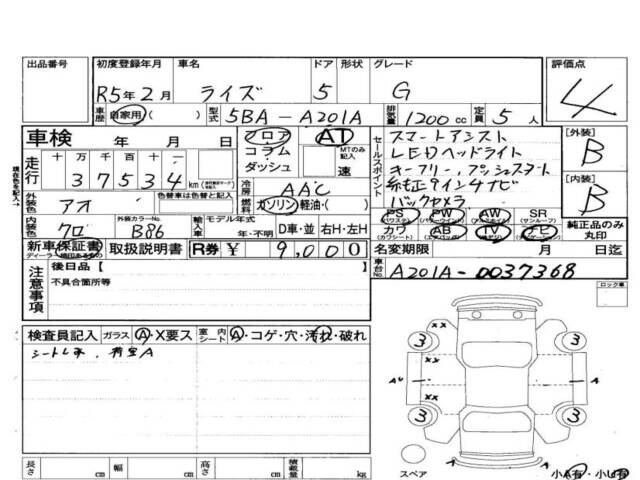 出品番号 初度登録年月 車名 ドア 形状 グレード 評価点
R5年2月 ライズ 5 G 4
車歴 自家用( ) 型式 5BA-A201A 排気量 1200cc 定員 5人
車検 年 月 日 フロア AT
コラム MTのみ記入
ダッシュ 速
走行 十 万 千 百 十
37534 km
セールスポイント スマートアシスト
LEDヘッドライト
オーナリー,プッシュスタート
純正9インチナビ
バックカメラ
[外装] B
[内装] B
外装色 アオ 色替車は色替と記入
冷房 AAC
燃料 ガソリン・軽油・( )
内装色 クロ 外装カラーNo. B86 輸入車 モデル年式 年・不明 D車・並 右H・左H
PS PW AW SR
(パワステ) (パワーウインド) (アルミホイル) (サンルーフ)
カワ AB TV ナビ
(カワシート) (エアバッグ) (テレビ) (ナビゲーション)
純正品のみ丸印
新車保証書 取扱説明書 R券 ¥ 9,000
名変期限 月 日迄
車台No. A201A-0037368
注意事項 後日品 [ ]
不具合箇所等
ロック車
検査員記入 ガラス A・X要ス 室内シート A・コゲ・穴・汚れ・破れ
シートしみ、荷室A
XX
3 3
AU A A
XX
3 3
A
スペア
小A有・小U有
長さ cm 幅 cm 高さ cm 積載量 kg